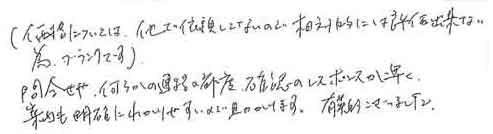 (価格については、他で依頼してないので相対的には評価出来ない
為、ブランクです)
問合せや、何らかの連絡の都度、確認のレスポンスが早く、
案内も明確にわかりやすいので助かります。有難うございました。